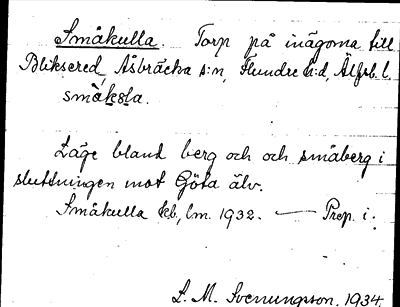 Småkulla. Torp på inägorna till
Bliksered, Åsbräcka s:n, Flundre h:d, Älfsb. l.
småksla.
Läge bland berg och och småberg i
sluttningen mot Göta älv.
Småkulla kb, lm. 1932. — Prep. i.
L. M. Svenungsson. 1934.